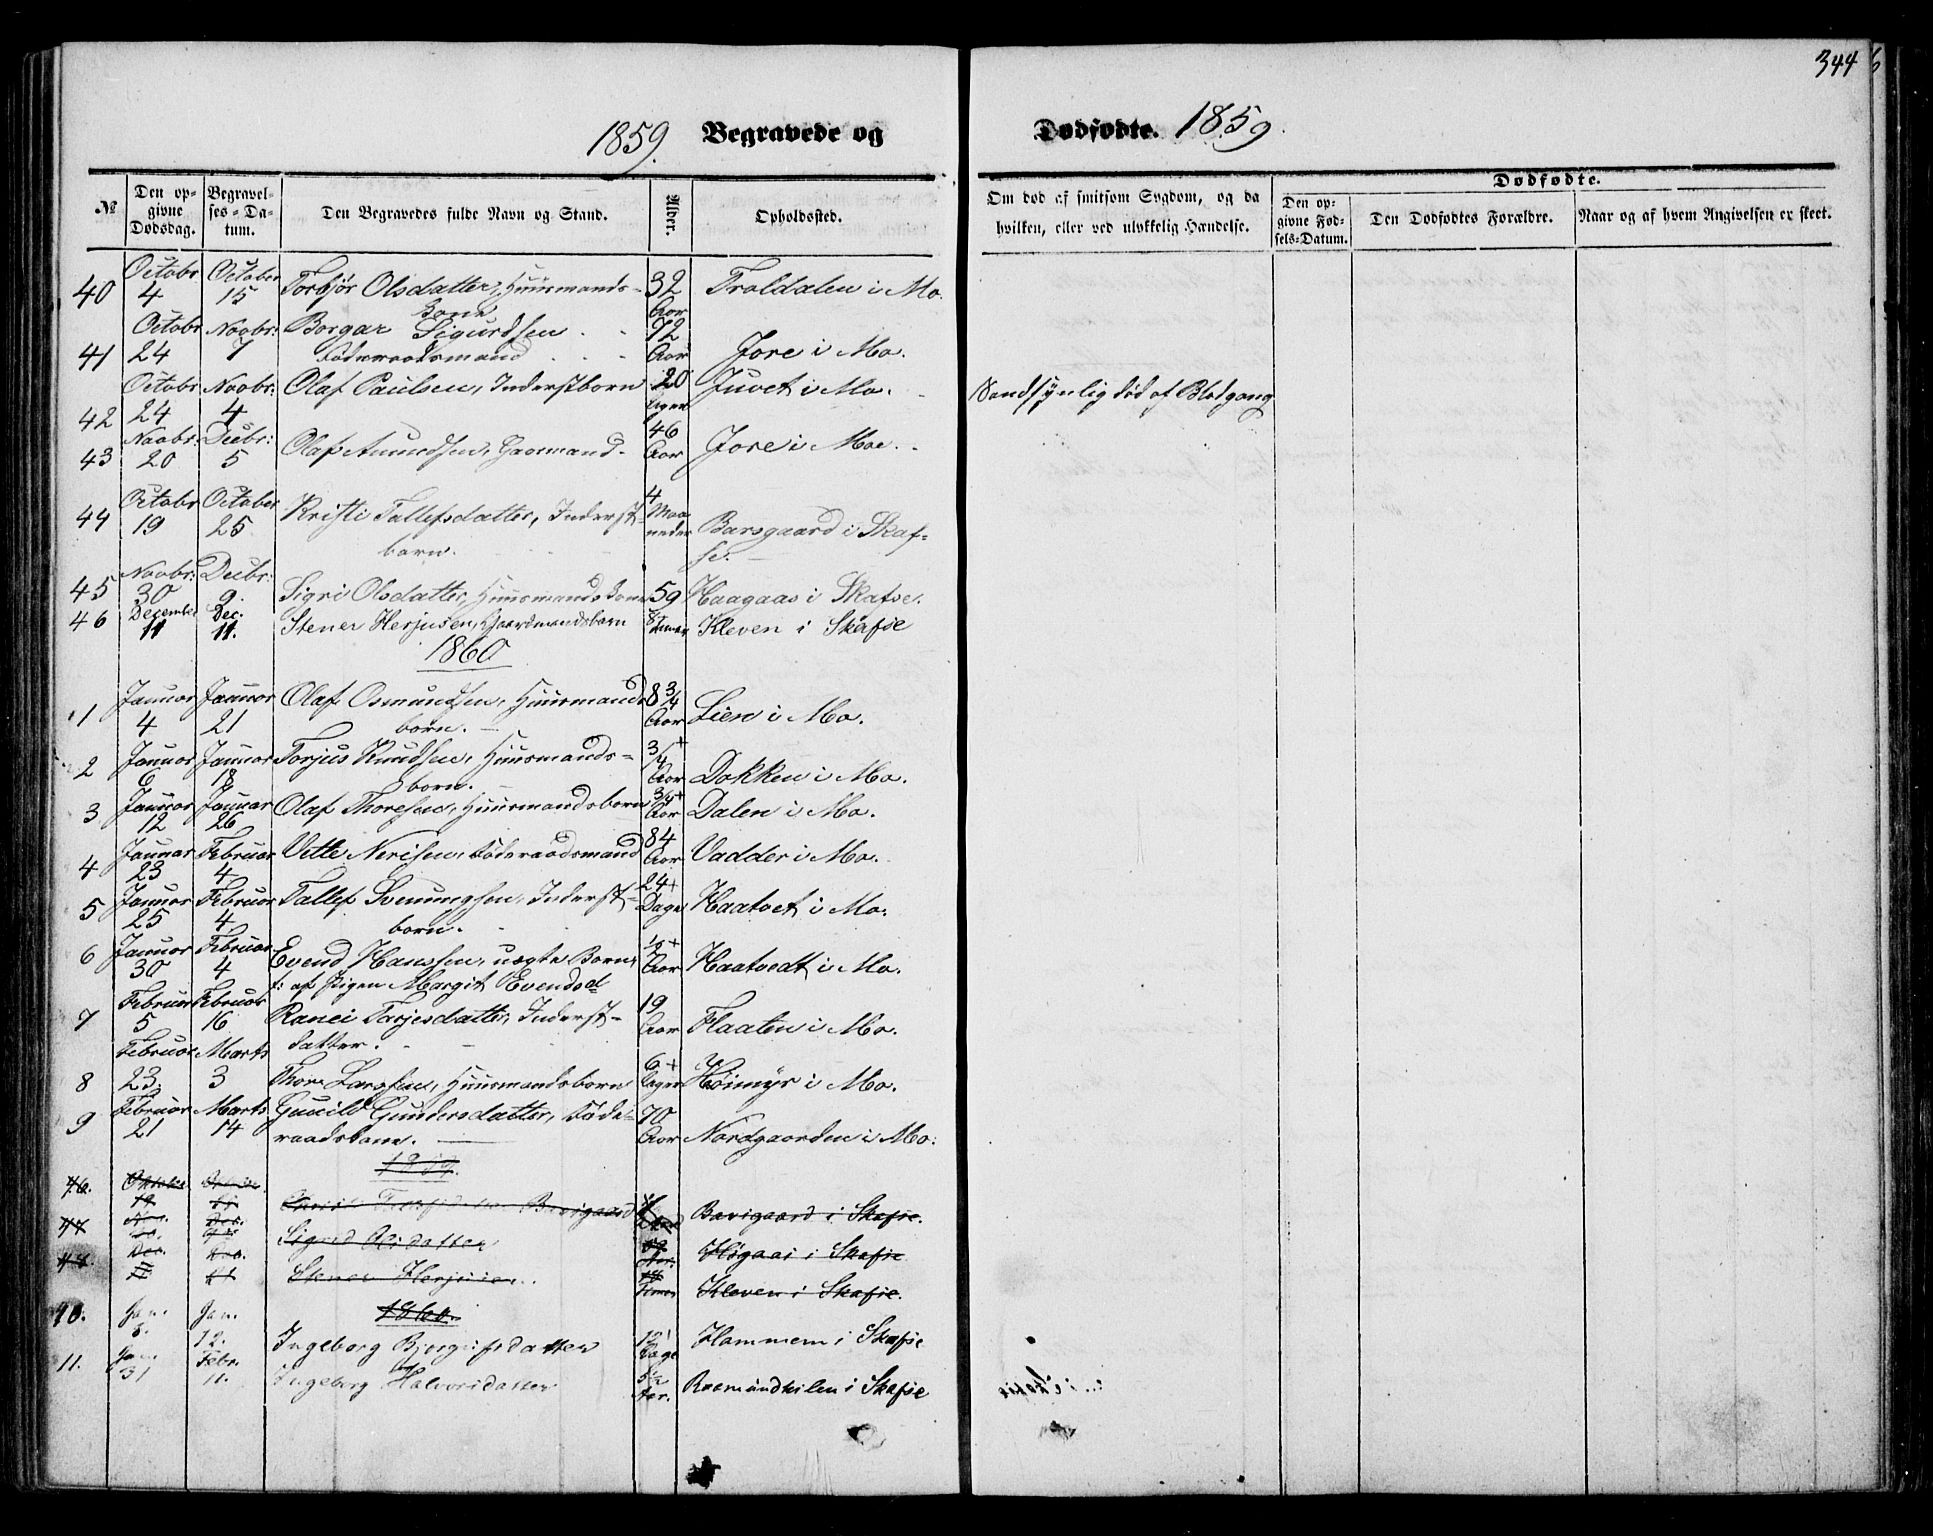 344
1859. Begravede og Dødfødte. 1859.
№ Den opgivne Dødsdag. Begravelses-Datum. Den Begravedes fulde Navn og Stand. Alder. Opholdssted. Om død af smitsom Sygdom, og da hvilken, eller ved ulykkelig Hændelse. Dødfødte. Den opgivne Fødsels-Datum. Den Dødfødtes Forældre. Naar og af hvem Angivelsen er skeet.
40 Octobr 4 October 15 Torbjør Olsdatter, Huusmands-kone 32 Aar Troldalen i Mo.
41 Octobr 24 Novbr: 7 Borgar Sigurdsen Føderaadsmand 72 Aar Jore i Mo.
42 Octobr 24 Novbr: 4 Olaf Paulsen, Inderstborn 20 Uger Juvet i Mo. Sandsynlig død af Blodgang
43 Novbr: 20 Decbr: 5 Olaf Aamundsen, Gaarmand. 46 Aar Jore i Moe.
44 Octobr 19 October 25 Kristi Tallefsdatter, Inderst-born. 4 Maaneder Barsgaard i Skafse.
45 Novbr: 30 Decbr: 9. Sigri Olsdatter, Huusmandskone 59 Haagaas i Skafse.
46 December 11 Dec. 11. Stener Herjusen, Gaardmandsbarn 8 Timer Kleven i Skafse
1860
1 Januar 4 Januar 21 Olaf Osmundsen, Huusmands born. 8 3/4 Aar Lien i Mo.
2 Januar 6 Januar 18 Torjus Knudsen, Huusmands-born. 3/4 + Aar Dokken i Mo.
3 Januar 12 Januar 26 Olaf Thoresen, Huusmandsborn 3/4 + Aar Dalen i Mo.
4 Januar 23 Februar 4 Vetle Nerisen, Føderaadsmand 84 Aar Vadder i Mo.
5 Januar 25 Februar 4 Tallef Svenungsen, Inderst-born. 24 + Dage Haatvet i Mo.
6 Januar 30 Februar 4 Evend Hanssen, uægte Born, f: af Pigen Margit Evendsd. + Aar Haatvedt i Mo.
7 Februar 5 Februar 16 Ranei Tarjesdatter, Inderst-datter. 19 Aar Flaaten i Mo.
8 Februar 23 Marts 3 Thore Larssen, Huusmandsborn 6 + Uger Høimyr i Mo.
9 Februar 21 Marts 14 Gunild Gundersdatter, Føderaadskone. 70 Aar Nordgaarden i Mo.
1859.
46. Oktober 19 Barsgaard Barsgaard i Skafse.
Nov. 30 Dec. Sigrid Olsdatter 59 Høgaas i Skafse
Dec. 11 Dec. 11 Stener Herjusen Timer Kleven i Skafse.
1860.
10. Jan. 5. Jan. 12. Ingeborg Bjørgulfsdatter 12 Dage Hammern i Skafse
11. Jan. 31 Febr. 11. Ingeborg Halvorsdatter 5 1/2 Aar. Roamundkilen i Skafse